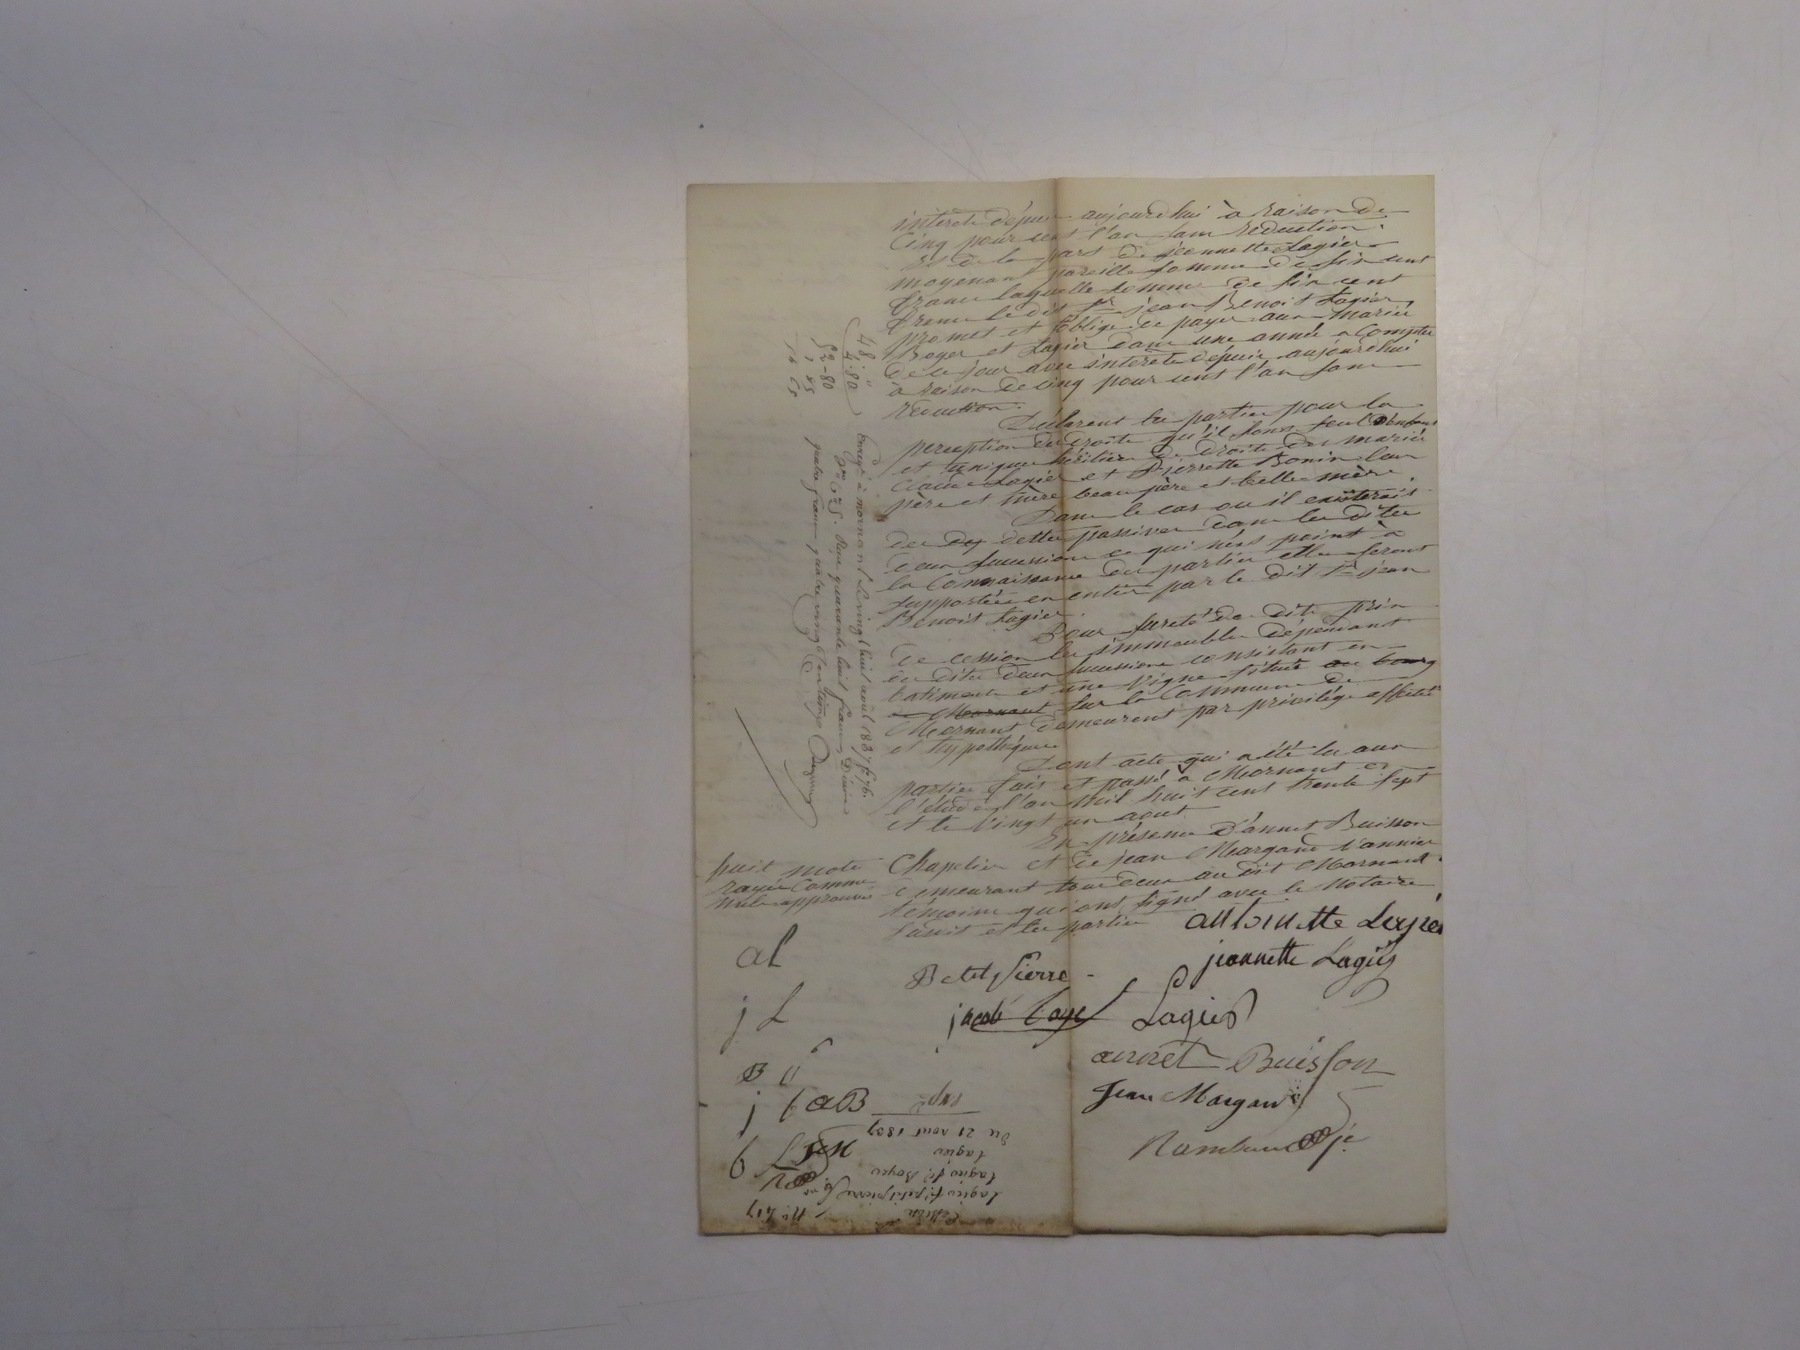 intérêts depuis aujourdhui à raison de
cinq pour cent l'an sans réduction.
Et de la part de jeannette Lagier
moyenant pareille somme de six cent
francs laquelle somme de six cent
francs le dit Sr jean Benoit Lagier
promet et oblige de payer aux mariés
Boyer et Lagier dans une année a compter
de ce jour avec intérêts depuis aujourdhui
à raison de cinq pour cent l'an sans
réduction.
Déclarent les parties pour la
perception des droits qu'ils sont seuls Enfants
et uniques héritiers de droits des mariés
Claude Lagier et Pierrette Bonin leur
père et mère beau père et belle mère
Dans le cas ou il existerait
des dettes passives dans les dites
deux successions ce qui n'est point à
la connaissance des parties elles seront
supportées en entier par le dit Sr jean
Benoit Lagier.
Pour sureté des dits prix
de cession les immeubles dépendant
des dites deux successions consistant en
batiments et une vigne situés au bourg
de Mornant sur la commune de
Mornant demeurent par privilége affectés
et hypothéqués
Dont acte qui a été lu aux
parties fait et passé à Mornant en
l'étude l'an mil huit cent trente sept
et le vingt un aout
En présence d'annet Buisson
Chapelier et de jean Margand vannier
demeurant tous deux au dit Mornant
témoins qui ont signé avec le notaire
et les parties
huit mots
rayés comme
nuls approuvés
antoinette Lagier
jeannette Lagier
Petit pierre
jacob Boye
Lagier
annet Buisson
Jean Margand
aL
j L
B
j b aB
48 "
4.80
52-80
Enregé à mornant le vingt huit août 1837 fo 76.
Reçu quarante huit francs Décime
quatre francs quatre vingt centimes
No 407
Cession
Lagier fe petit pierre
Lagier fe Boyer
Lagier
Du 21 aout 1837
Exp